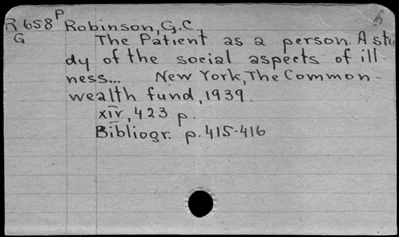 R658P Robinson, G.C.
G The Patient as a person. A stu
dy of the social aspects of ill
ness... New York, The Common-
wealth fund, 1939.
xiv, 423 p.
Bibliogr. p. 415-416